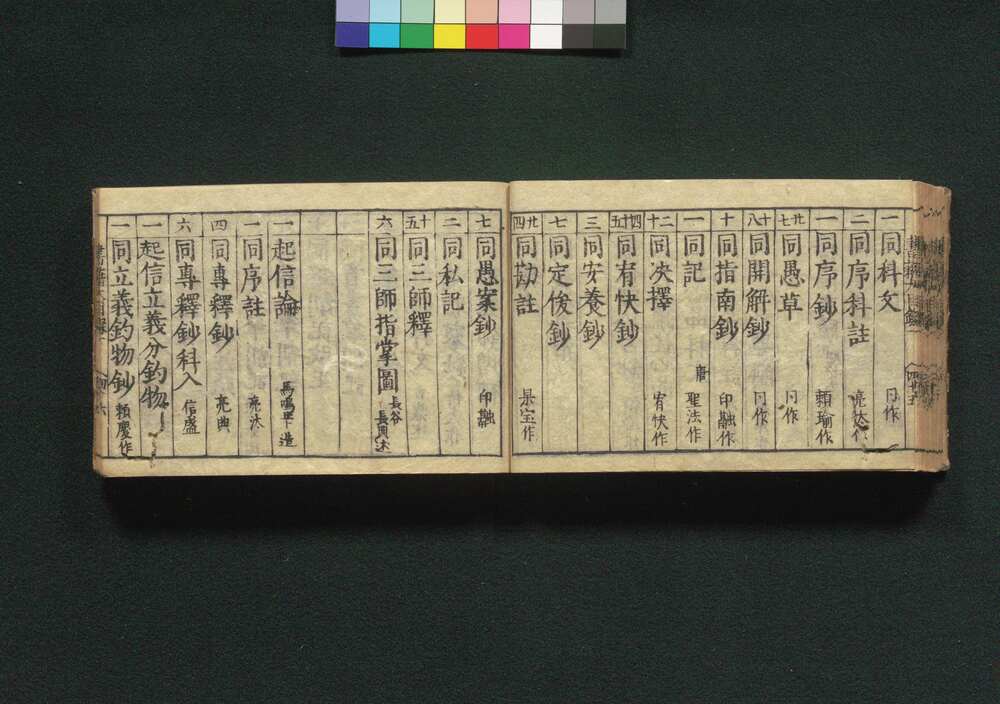 一 同科文 同作
二 同序科註
一 同序鈔 頼瑜作
廿七 同愚草 同作
十八 同開解鈔 同作
十 同指南鈔 印融作
一 同記 唐 聖法作
十二 同决擇
四十五 同有快鈔 宥快作
三 同安養鈔
七 同定俊鈔
廿四 同勘註 杲宝作
七 同愚案鈔 印融
二 同私記
十五 同三師釋
六 同三師指掌圖 長谷
一 起信論 馬鳴 造
一 同序註 亮汰
四 同專釋鈔 亮典
六 同專釋鈔科入 信盛
一 起信立義分釣物
一 同立義釣物鈔 頼慶作